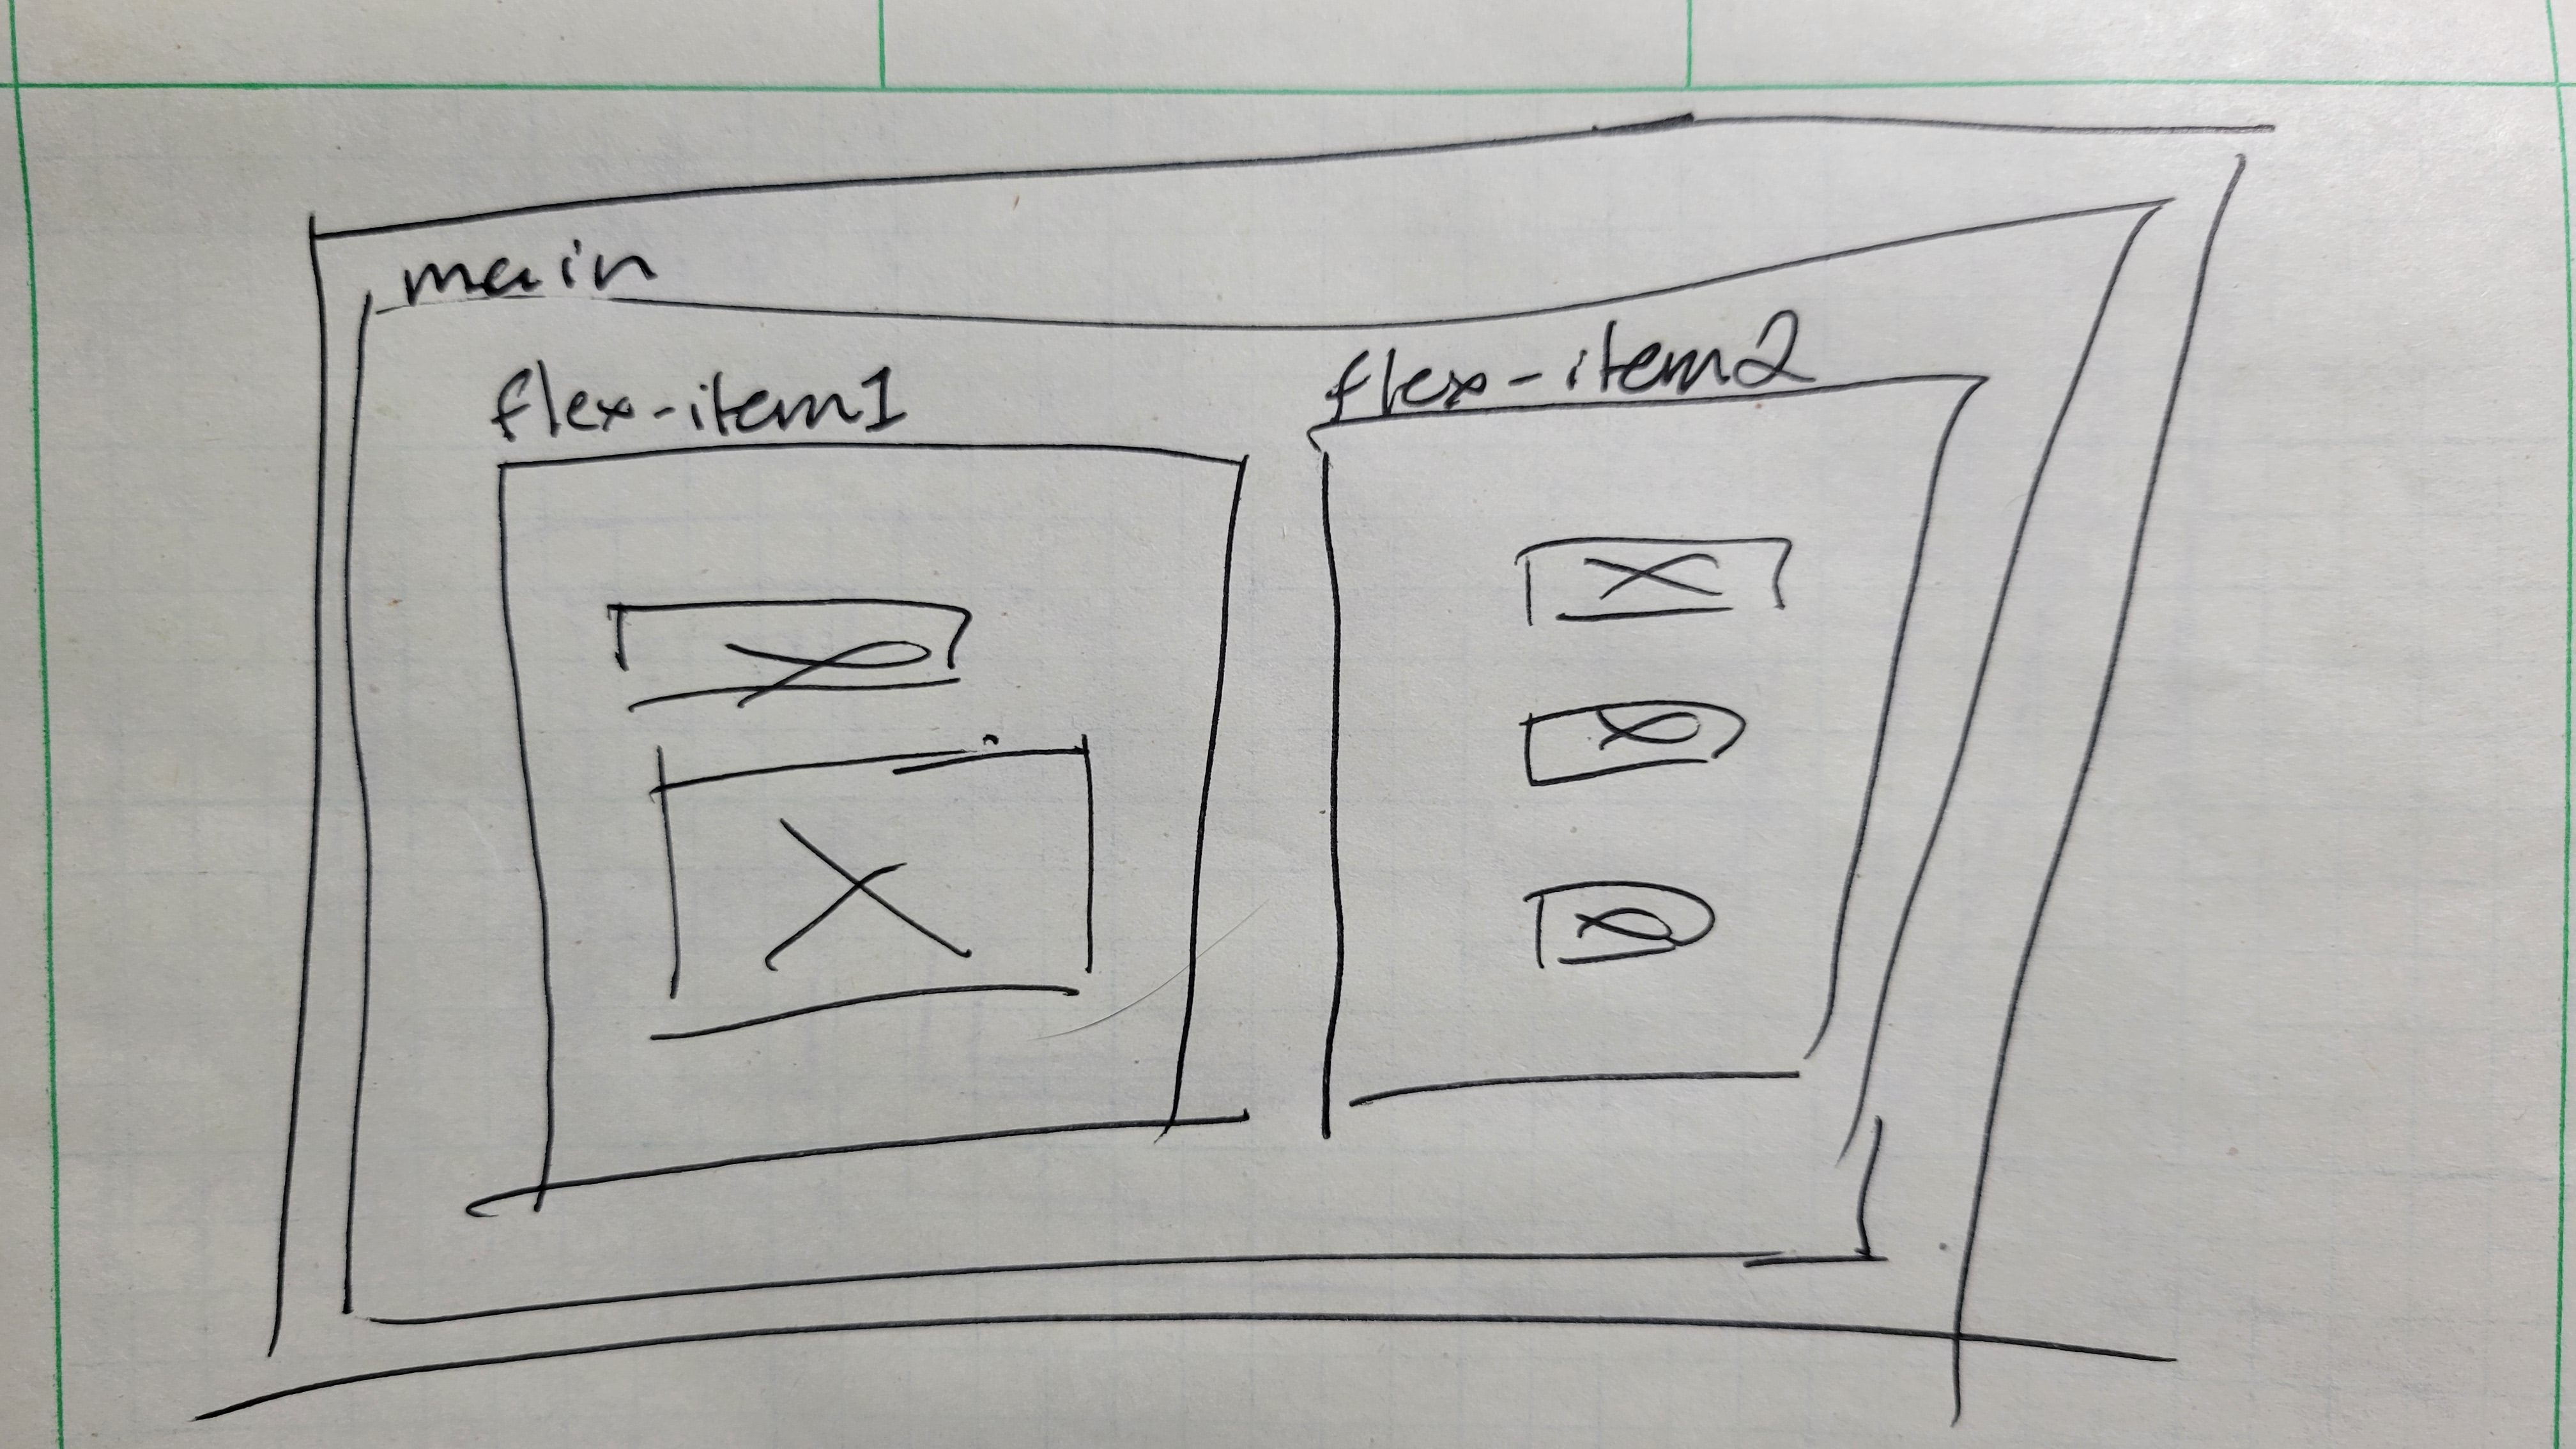 main
flex-item1
flex-item2